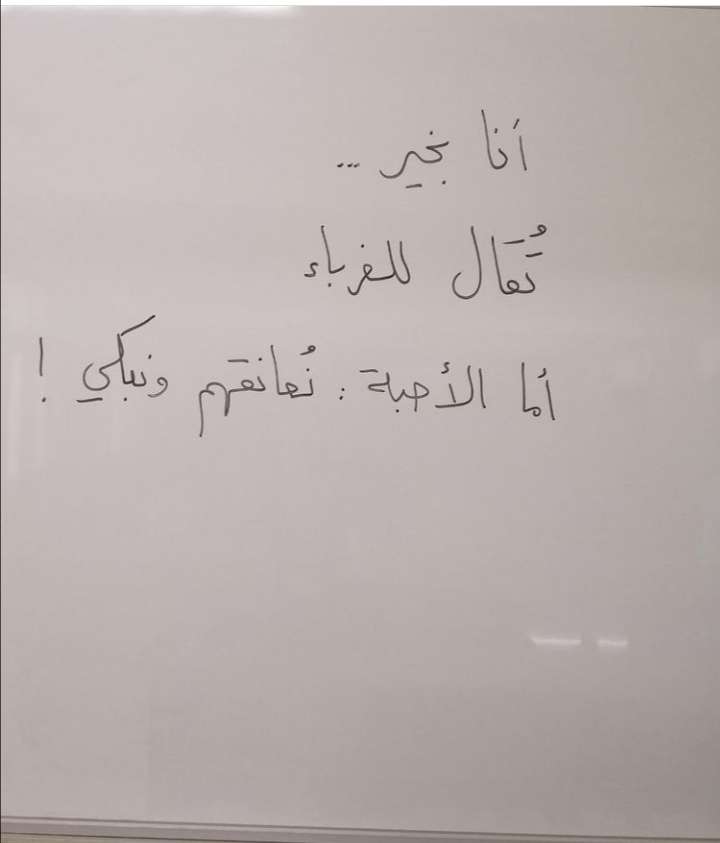 أنا بخير ...
تُقال للغرباء
أما الأحبة : نُعانقهم ونبكي !